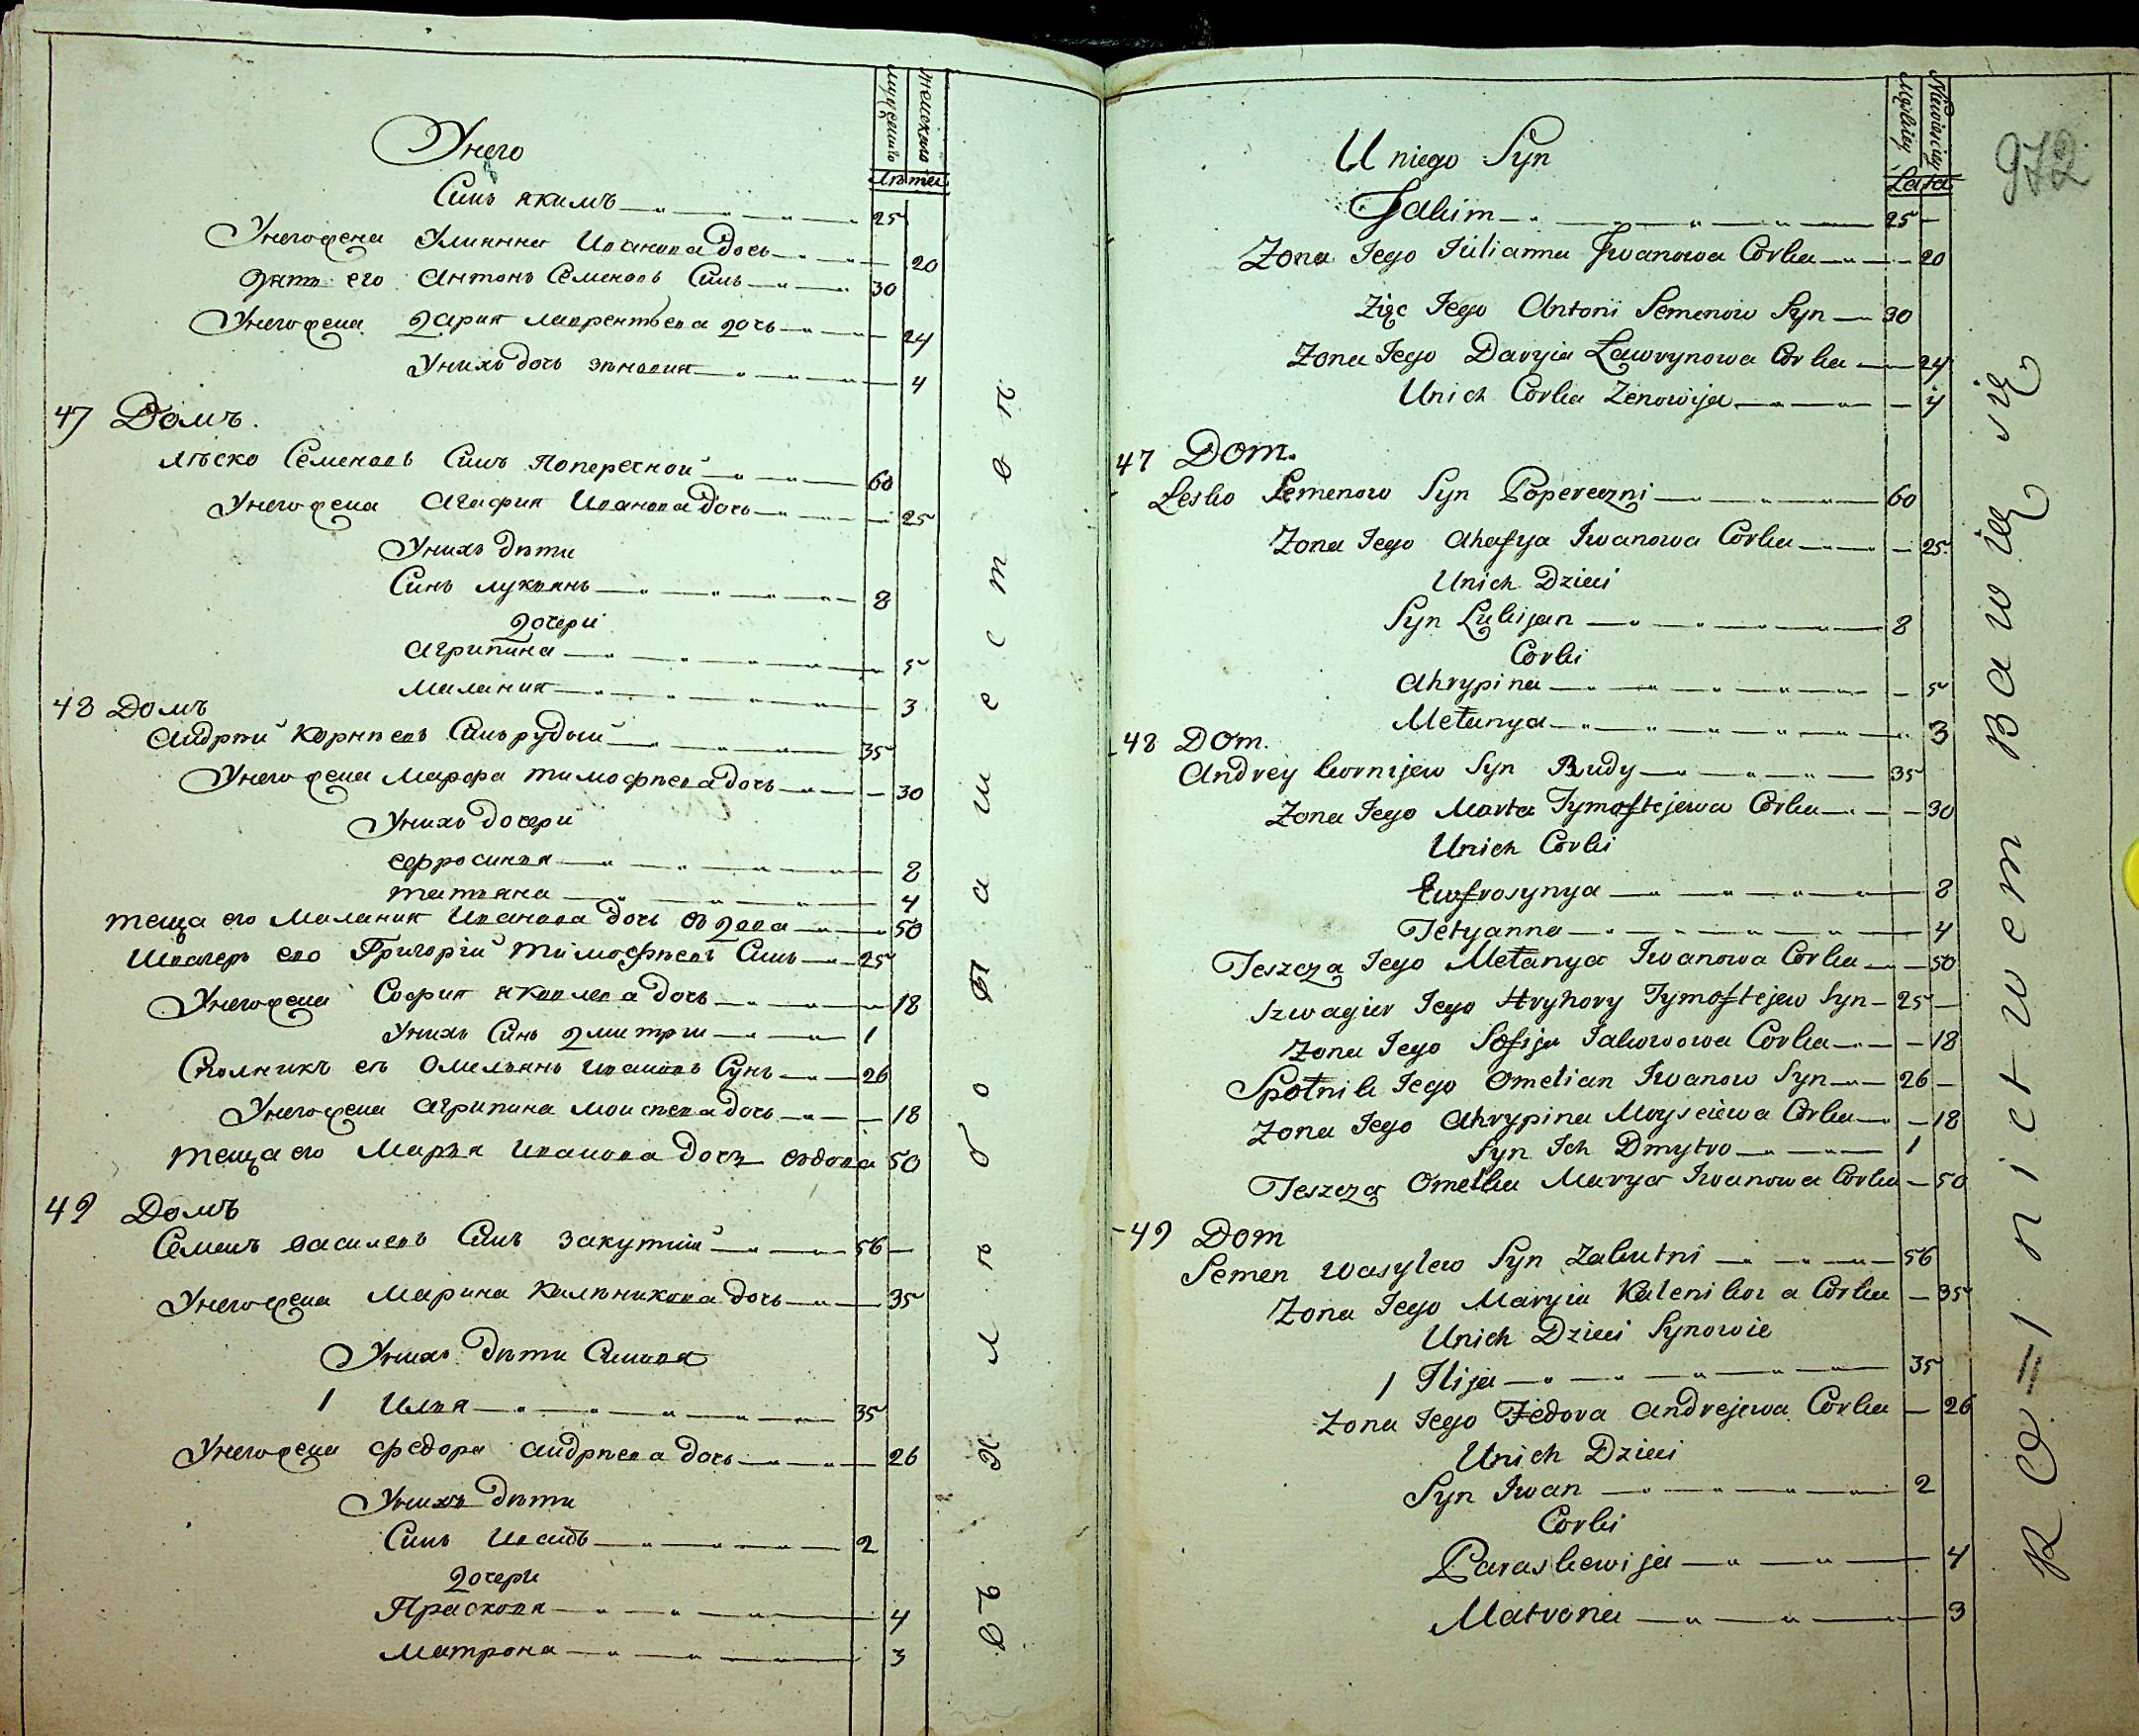 Мужеска
Женска
Лѣта
Унего
Синъ Якимъ 25
Унего жена Улиянна Иванова дочь 20
Зять его Антонъ Семеновъ Синъ 30
Унего жена Дария Лаврентьева дочь 24
Унихъ дочь Зѣновия 4
47 Домъ.
Лѣско Семеновъ Синъ Поперечной 60
Унего жена Агафия Иванова дочь 25
Унихъ дѣти
Синъ Лукьянъ 8
Дочери
Агрипина 5
Малания 3
48 Домъ
Андрѣй Корнѣевъ Синъ Рудый 35
Унего жена Марфа Тимофѣева дочь 30
Унихъ дочери
Ефросиния 8
Татьяна 4
Теща его Малания Иванова дочь вдова 50
Швагеръ его Григорій Тимофѣевъ Синъ 25
Унего жена София Яковлева дочь 18
Унихъ Синъ Дмитри 1
Сполникъ ев Омильянъ Ивановъ Сунъ 26
Унего жена Агрипина Моисѣева дочь 18
Теща его Марья Иванова дочь вдова 50
49 Домъ
Семенъ Василевъ Синъ Закутній 56
Унего жена Марина Калѣникова дочь 35
Унихъ дѣти Синовя
1 Илья 35
Унего жена Федора Андрѣева дочь 26
Унихъ дѣти
Синъ Иванъ 2
Дочери
Прасковя 4
Матрона 3
972
Męskiey
Niewieściey
Lata
U niego Syn
Jakim 25
Zona Jego Julianna Jwanowa Corka 20
Zięc Jego Antoni Semenow Syn 30
Zona Jego Daryia Ławrynowa Corka 24
Unich Corka Zenowija 4
47 Dom.
Lesko Semenow Syn Popereczni 60
Zona Jego Ahafya Jwanowa Corka 25
Unich Dzieci
Syn Lukijan 8
Corki
Ahrypina 5
Mełanya 3
48 Dom.
Andrey Kornijew Syn Rudy 35
Zona Jego Marta Tymoftejewa Corka 30
Unich Corki
Ewfrosynya 8
Tetyanna 4
Teszcza Jego Mełanya Jwanowa Corka 50
Szwagier Jego Hryhory Tymoftejew Syn 25
Zona Jego Sofija Jakowowa Corka 18
Społnik Jego Omelian Jwanow Syn 26
Zona Jego Ahrypina Moysciewa Corka 18
Syn Jch Dmytro 1
Teszcza Omelka Marya Jwanowa Corka 50
49 Dom
Semen Wasylew Syn Zakutni 56
Zona Jego Maryia Kalenikow a Corka 35
Unich Dzieci Synowie
1 Ilija 35
Zona Jego Fedora Andrejewa Corka 26
Unich Dzieci
Syn Jwan 2
Corki
Paraskewija 4
Matrona 3
nictwem Bawię się